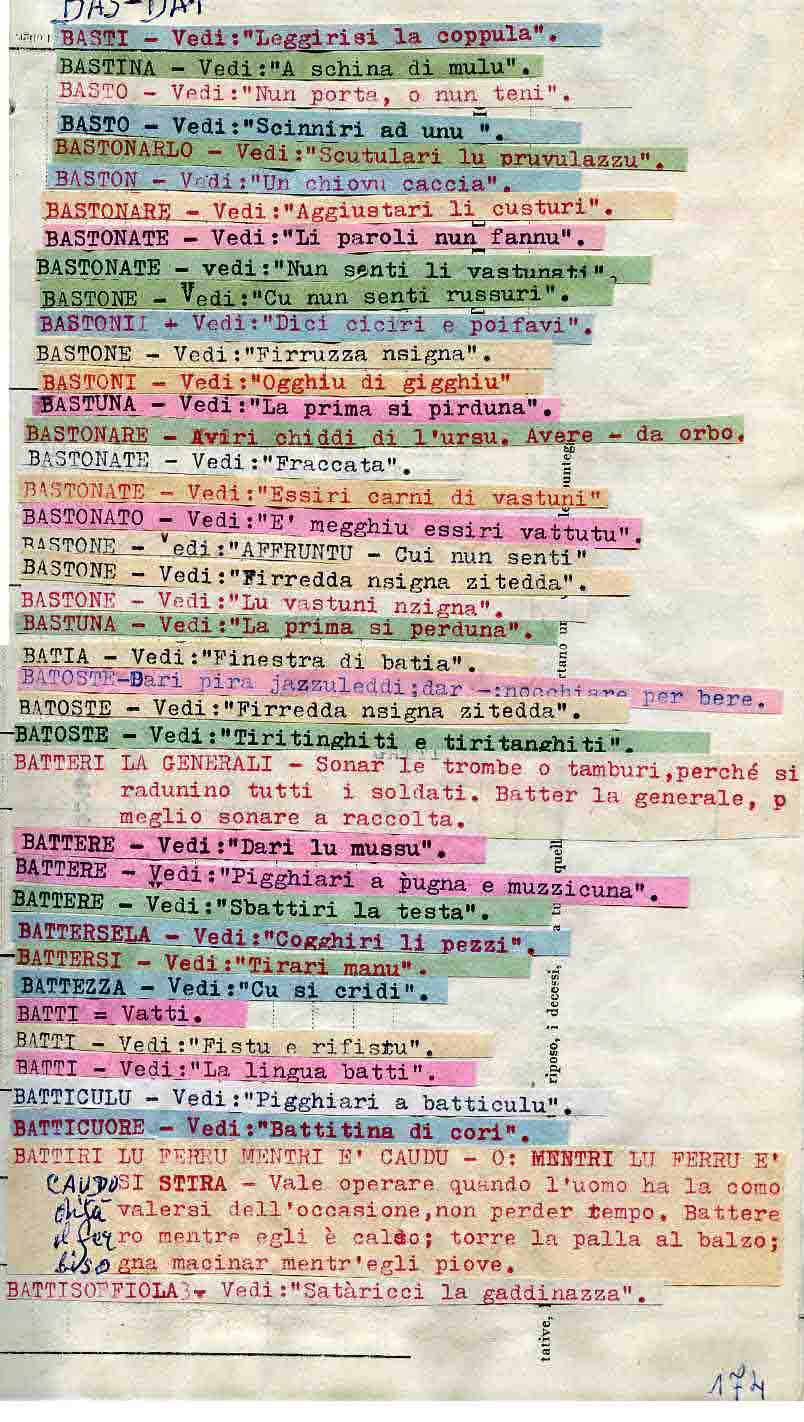 BAS-BAT
BASTI - Vedi:"Leggirisi la coppula".
BASTINA - Vedi:"A schina di mulu".
BASTO - Vedi:"Nun porta, o nun teni".
BASTO - Vedi:"Scinniri ad unu ".
BASTONARLO - Vedi:"Scutulari lu pruvulazzu".
BASTON - Vedi:"Un chiovu caccia".
BASTONARE - Vedi:"Aggiustari li custuri".
BASTONATE - Vedi:"Li paroli nun fannu".
BASTONATE - vedi:"Nun senti li vastunati",
BASTONE - Vedi:"Cu nun senti russuri".
BASTONII + Vedi:"Dici ciciri e poifavi".
BASTONE - Vedi:"Firruzza nsigna".
BASTONI - Vedi:"Ogghiu di gigghiu"
BASTUNA - Vedi:"La prima si pirduna".
BASTONARE - Aviri chiddi di l'ursu. Avere - da orbo.
BASTONATE - Vedi:"Fraccata".
BASTONATE - Vedi:"Essiri carni di vastuni"
BASTONATO - Vedi:"E' megghiu essiri vattutu".
BASTONE - Vedi:"AFFRUNTU - Cui nun senti"
BASTONE - Vedi:"Firredda nsigna zitedda".
BASTONE - Vedi:"Lu vastuni nzigna".
BASTUNA - Vedi:"La prima si perduna".
BATIA - Vedi:"Finestra di batia".
BATOSTE-Dari pira jazzuleddi;dar -:nocchiare per bere.
BATOSTE - Vedi:"Firredda nsigna zitedda".
BATOSTE - Vedi:"Tiritinghiti e tiritanghiti".
BATTERI LA GENERALI - Sonar le trombe o tamburi,perché si
radunino tutti i soldati. Batter la generale, p
meglio sonare a raccolta.
BATTERE - Vedi:"Dari lu mussu".
BATTERE - Vedi:"Pigghiari a pugna e muzzicuna".
BATTERE - Vedi:"Sbattiri la testa".
BATTERSELA - Vedi:"Cogghiri li pezzi".
BATTERSI - Vedi:"Tirari manu".
BATTEZZA - Vedi:"Cu si cridi".
BATTI = Vatti.
BATTI - Vedi:"Fistu e rifistu".
BATTI - Vedi:"La lingua batti".
BATTICULU - Vedi:"Pigghiari a batticulu".
BATTICUORE - Vedi:"Battitina di cori".
BATTIRI LU FERRU MENTRI E' CAUDU - O: MENTRI LU FERRU E'
CAUDU SI STIRA - Vale operare quando l'uomo ha la como
dità valersi dell'occasione,non perder tempo. Battere
il ferro mentre egli è caldo; torre la palla al balzo;
bisogna macinar mentr'egli piove.
BATTISOFFIOLA - Vedi:"Satàricci la gaddinazza".
punteg
rtano un
quell
a tu
riposo, i decessi,
tative,
174